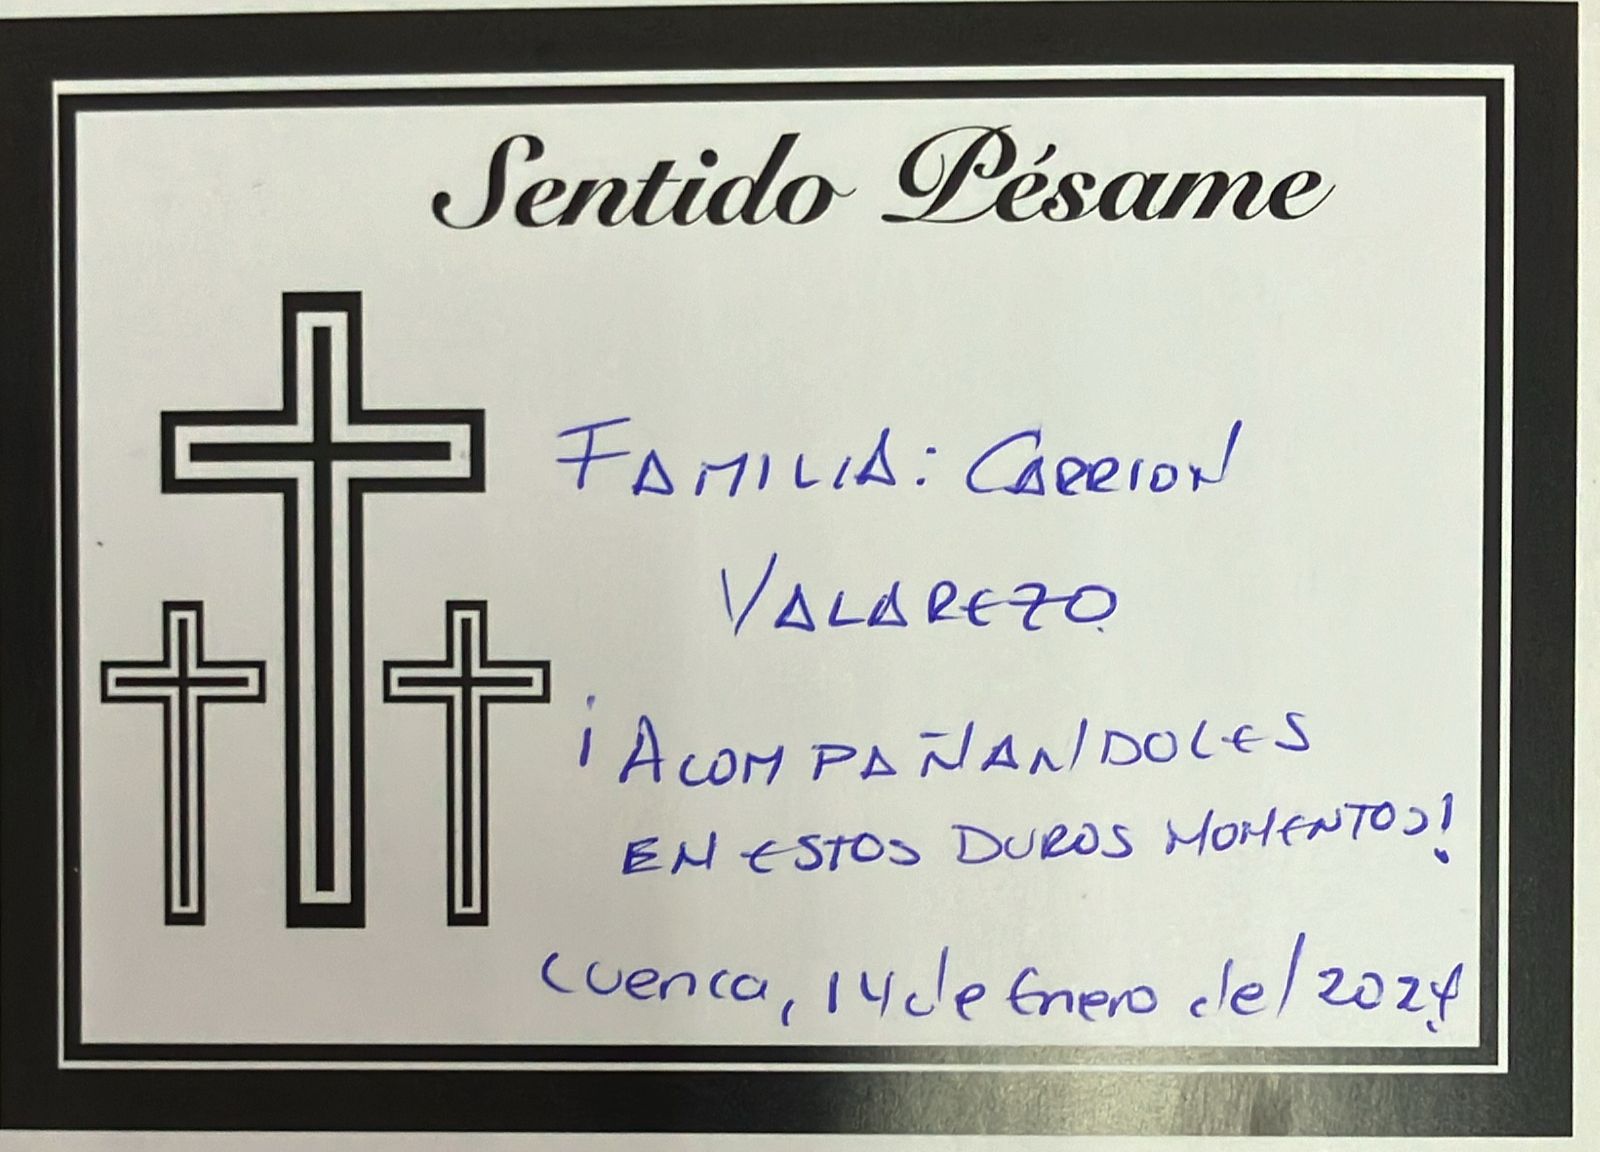 Sentido Pésame
FAMILIA: CARRION
VALAREZO
¡ACOMPAÑANDOLES
EN ESTOS DUROS MOMENTOS!
Cuenca, 14 de Enero del 2024